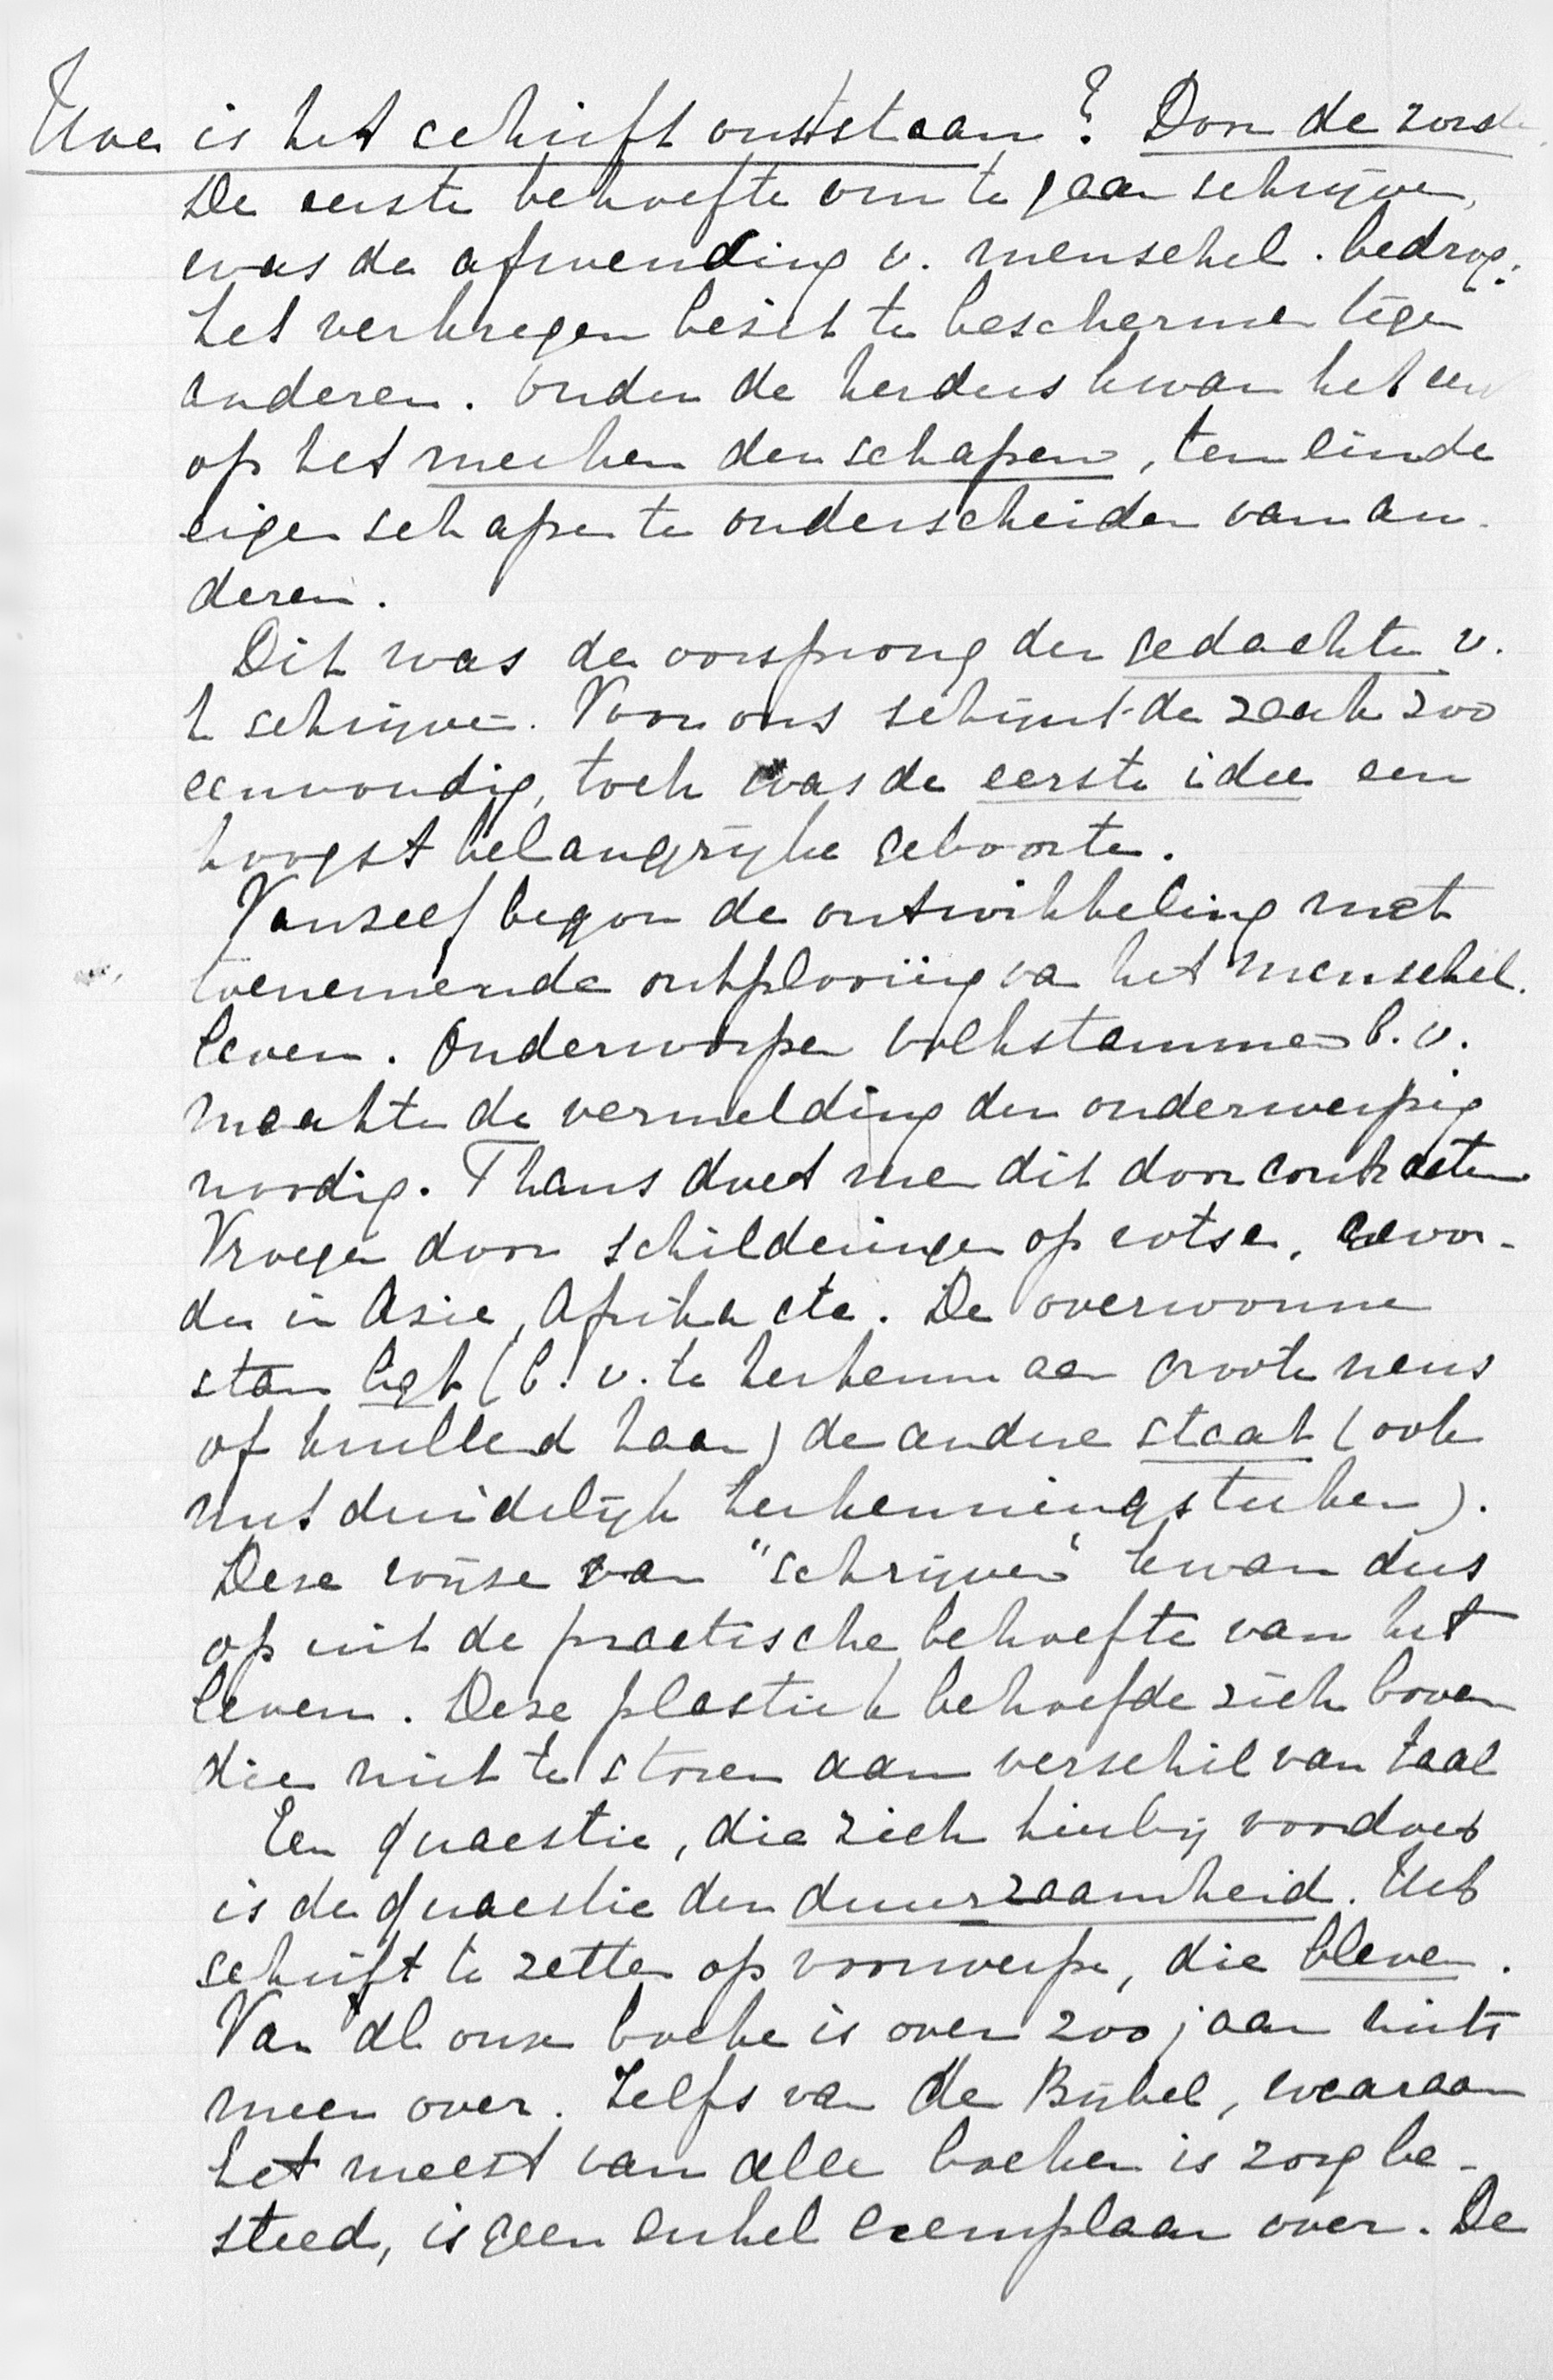 Hoe is het schrift ontstaan? Door de zonde.
De eerste behoefte om te gaan schrijven,
was de afwending v. menschel. bedrog:
het verkregen bezit te beschermen tegen
anderen. Onder de herders kwam het een
op het merken der schapen, ten einde
eigen schapen te onderscheiden van an-
deren.
Dit was de oorsprong der gedachte v.
h schrijven. Voor ons schijnt de zaak zoo
eenvoudig, toch was de eerste idee een
hoogst belangrijke geboorte.
Vanzelf begon de ontwikkeling met
toenemende ontplooiing van het menschel.
leven. Onderworpen volkstammen b.v.
maakte de vermelding der onderwerping
noodig. Thans doet men dit door contracten
Vroeger door schilderingen op rotsen, gevon-
den in Azie, Afrika etc. De overwonnen
stam ligt (b.v. te herkennen aan groote neus
of krullend haar) de andere staat (ook
met duidelijk herkenningsteeken).
Deze wijze van "schrijven" kwam dus
op uit de practische behoefte van het
leven. Deze plastiek behoefde zich boven
dien niet te storen aan verschil van taal
Een quaestie, die zich hierbij voordoet
is de quaestie der duurzaamheid. Het
schrift te zetten op voorwerpen, die bleven.
Van al onze boeken is over 200 jaar niets
meer over. Zelfs van de Bijbel, waaraan
het meest van alle boeken is zorg be-
steed, is geen enkel exemplaar over. De